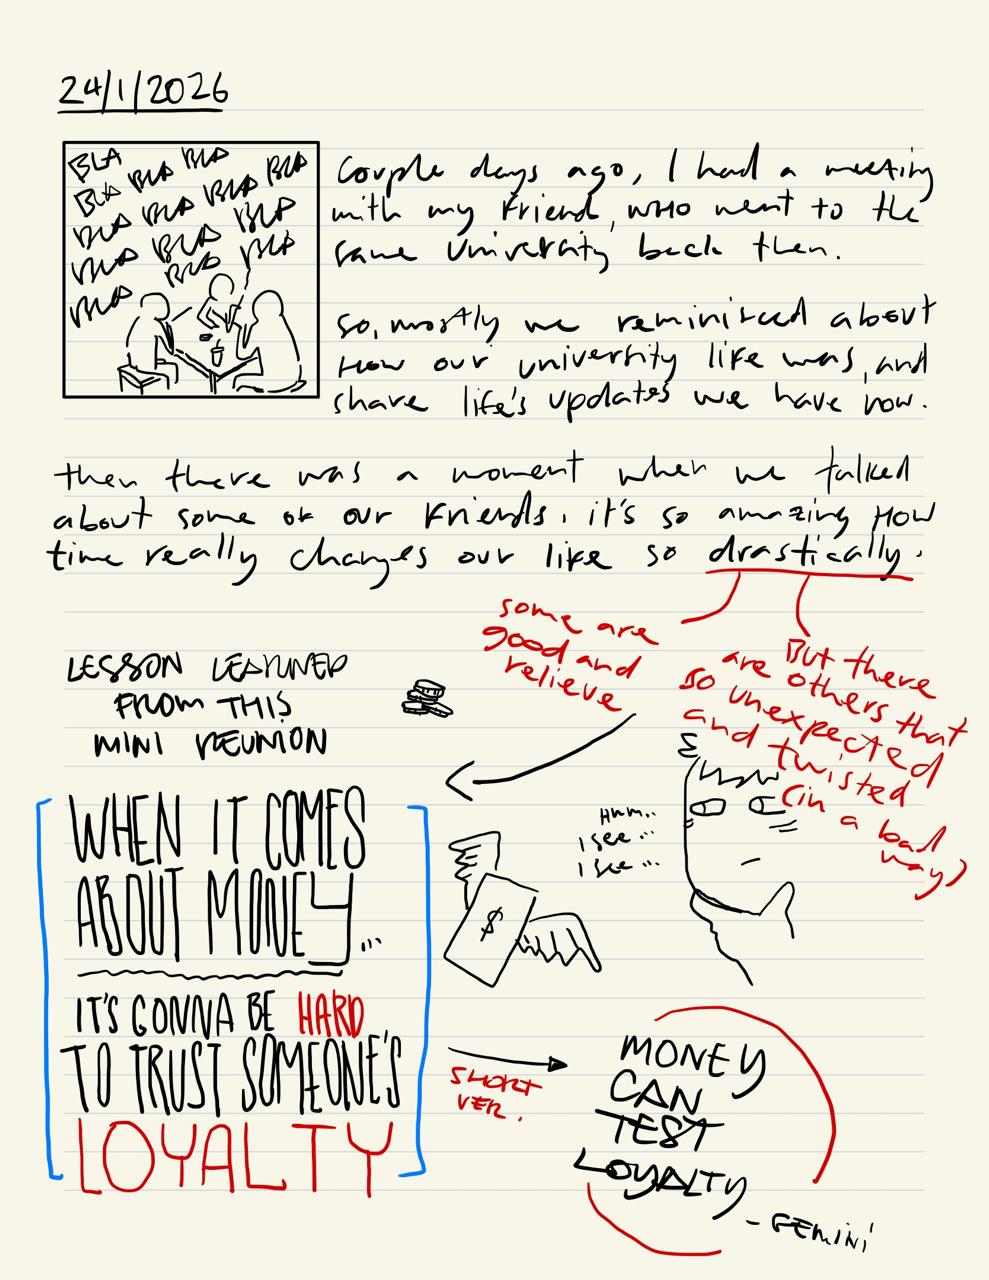 24/1/2026
BLA BLA BLA BLA
BLA BLA BLA
BLA BLA BLA
BLA BLA BLA
BLA BLA
BLA
Couple days ago, I had a meeting
with my friend, who went to the
same university back then.
So, mostly we reminisced about
how our university life was, and
share life's updates we have now.
then there was a moment when we talked
about some of our friends. it's so amazing how
time really changes our life so drastically.
some are
good and
relieve
But there
are others that
so unexpected
and twisted
(in a bad
way)
LESSON LEARNED
FROM THIS
MINI REUNION
WHEN IT COMES
ABOUT MONEY...
IT'S GONNA BE HARD
TO TRUST SOMEONE'S
LOYALTY
Hmm..
I see...
I see...
$
SHORT
VER.
MONEY
CAN
TEST
LOYALTY
- GEMINI